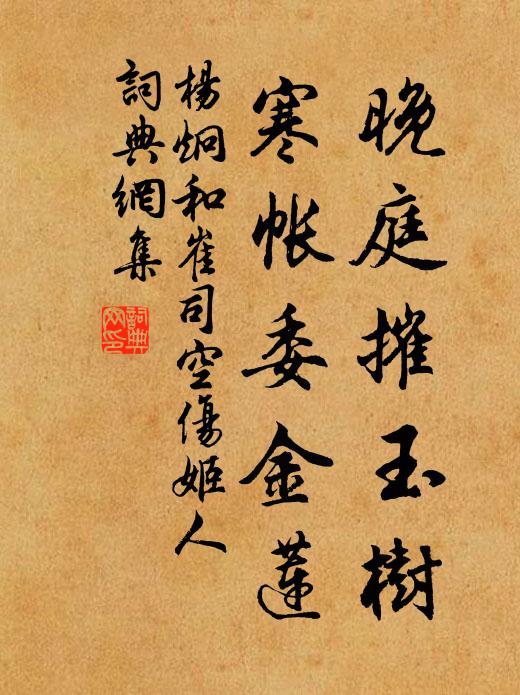 晚庭摧玉樹
寒帳委金蓮
楊炯和崔司空傷姬人
詞典網集
詞典
网印